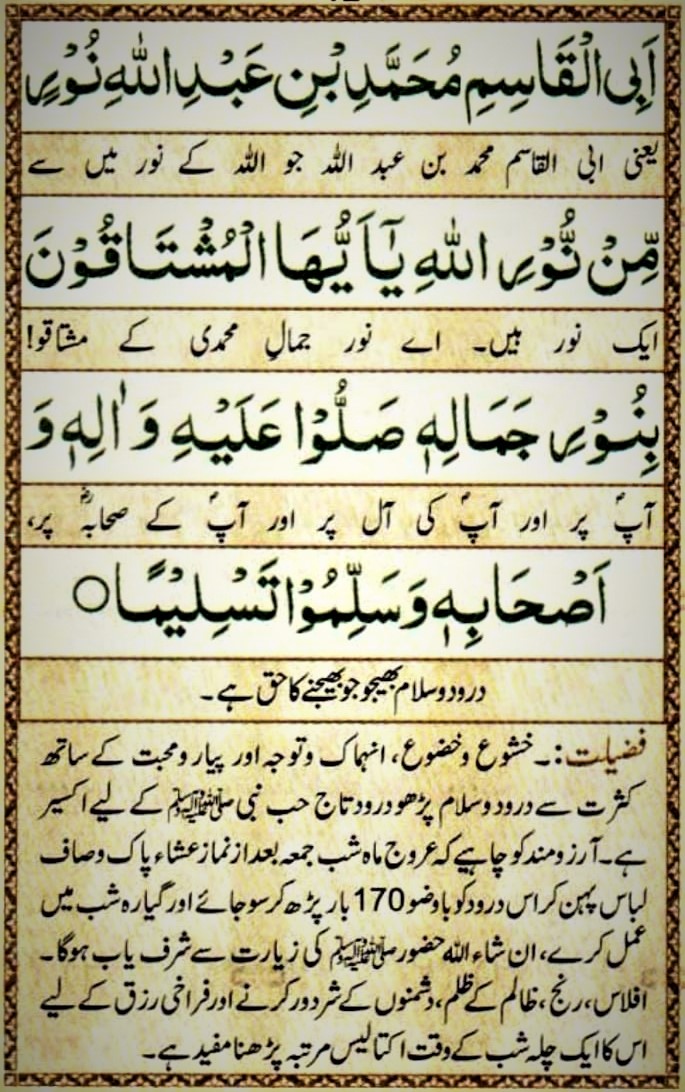 اَبِی الْقَاسِمِ مُحَمَّدِ بْنِ عَبْدِ اللهِ نُوْرٍ
یعنی ابی القاسم محمد بن عبد اللہ جو اللہ کے نور میں سے
مِّنْ نُّوْرِ اللهِ یٰۤاَیُّهَا الْمُشْتَاقُوْنَ
ایک نور ہیں۔ اے نور جمالِ محمدی کے مشتاقو!
بِنُوْرِ جَمَالِهٖ صَلُّوْا عَلَیْهِ وَ اٰلِهٖ وَ
آپؐ پر اور آپؐ کی آل پر اور آپؐ کے صحابہؓ پر،
اَصْحَابِهٖ وَسَلِّمُوْا تَسْلِیْمًا ○
درود و سلام بھیجو جو بھیجنے کا حق ہے۔
فضیلت:۔ خشوع و خضوع، انہماک و توجہ اور پیار و محبت کے ساتھ
کثرت سے درود و سلام پڑھو درود تاج حب نبی ﷺ کے لیے اکسیر
ہے۔ آرزومند کو چاہیے کہ عروج ماہ شب جمعہ بعد از نماز عشاء پاک و صاف
لباس پہن کر اس درود کو باوضو 170 بار پڑھ کر سو جائے اور گیارہ شب میں
عمل کرے، ان شاء اللہ حضور ﷺ کی زیارت سے شرف یاب ہوگا۔
افلاس، رنج، ظالم کے ظلم، دشمنوں کے شر دور کرنے اور فراخی رزق کے لیے
اس کا ایک چلہ شب کے وقت اکتالیس مرتبہ پڑھنا مفید ہے۔